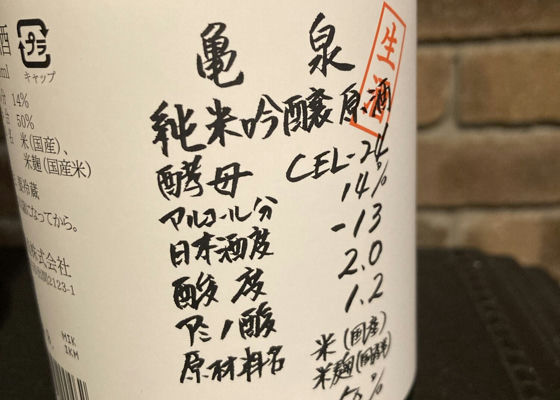 亀泉
生酒
純米吟醸原酒
酵母 CEL-24
アルコール分 14%
日本酒度 -13
酸度 2.0
アミノ酸 1.2
原材料名 米(国産)
米麹(国産米)
50%
酒
ml
プラ
キャップ
14%
50%
米(国産)、
米麹(国産米)
冷蔵
になってから。
株式会社
2123-1
MIK
IKM